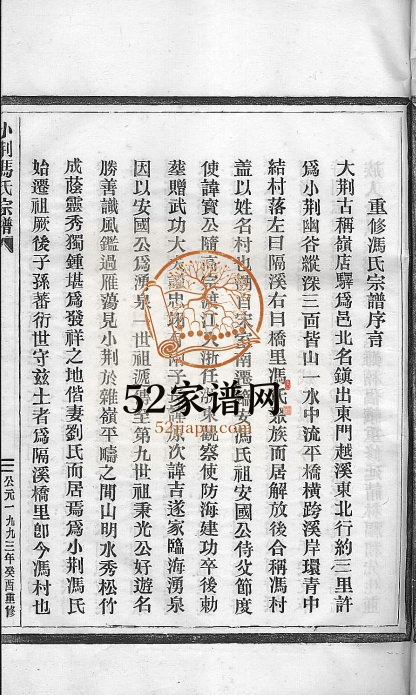 重修馮氏宗譜序言
大荆古稱嶺店驛爲邑北名鎮出東門越溪東北行約三里許
爲小荆幽谷縱深三面皆山一水中流平橋橫跨溪岸環青中
結村落左曰隔溪右曰橋里馮氏聚族而居解放後合稱馮村
盖以姓名村也溯自宋室南遷臨安馮氏祖安國公侍父節度
使諱實公隨高宗渡江入浙任浙東觀察使防海建功卒後勅
塟贈武功大夫諡忠翊子次諱吉遂家臨海湧泉
因以安國公爲湧泉一世祖遞傳至第九世祖秉光公好遊名
勝善識風鑑過雁蕩見小荆於雜嶺平疇之間山明水秀松竹
成蔭靈秀獨鍾堪爲發祥之地偕妻劉氏而居焉爲小荆馮氏
始遷祖厥後子孫蕃衍世守兹土者爲隔溪橋里卽今馮村也
小荆馮氏宗譜
公元一九九三年癸酉重修
52家谱网
52jiapu.com